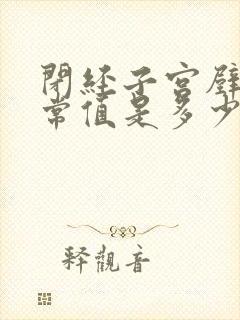 閉經子宮壁
常值是多少
释觀音